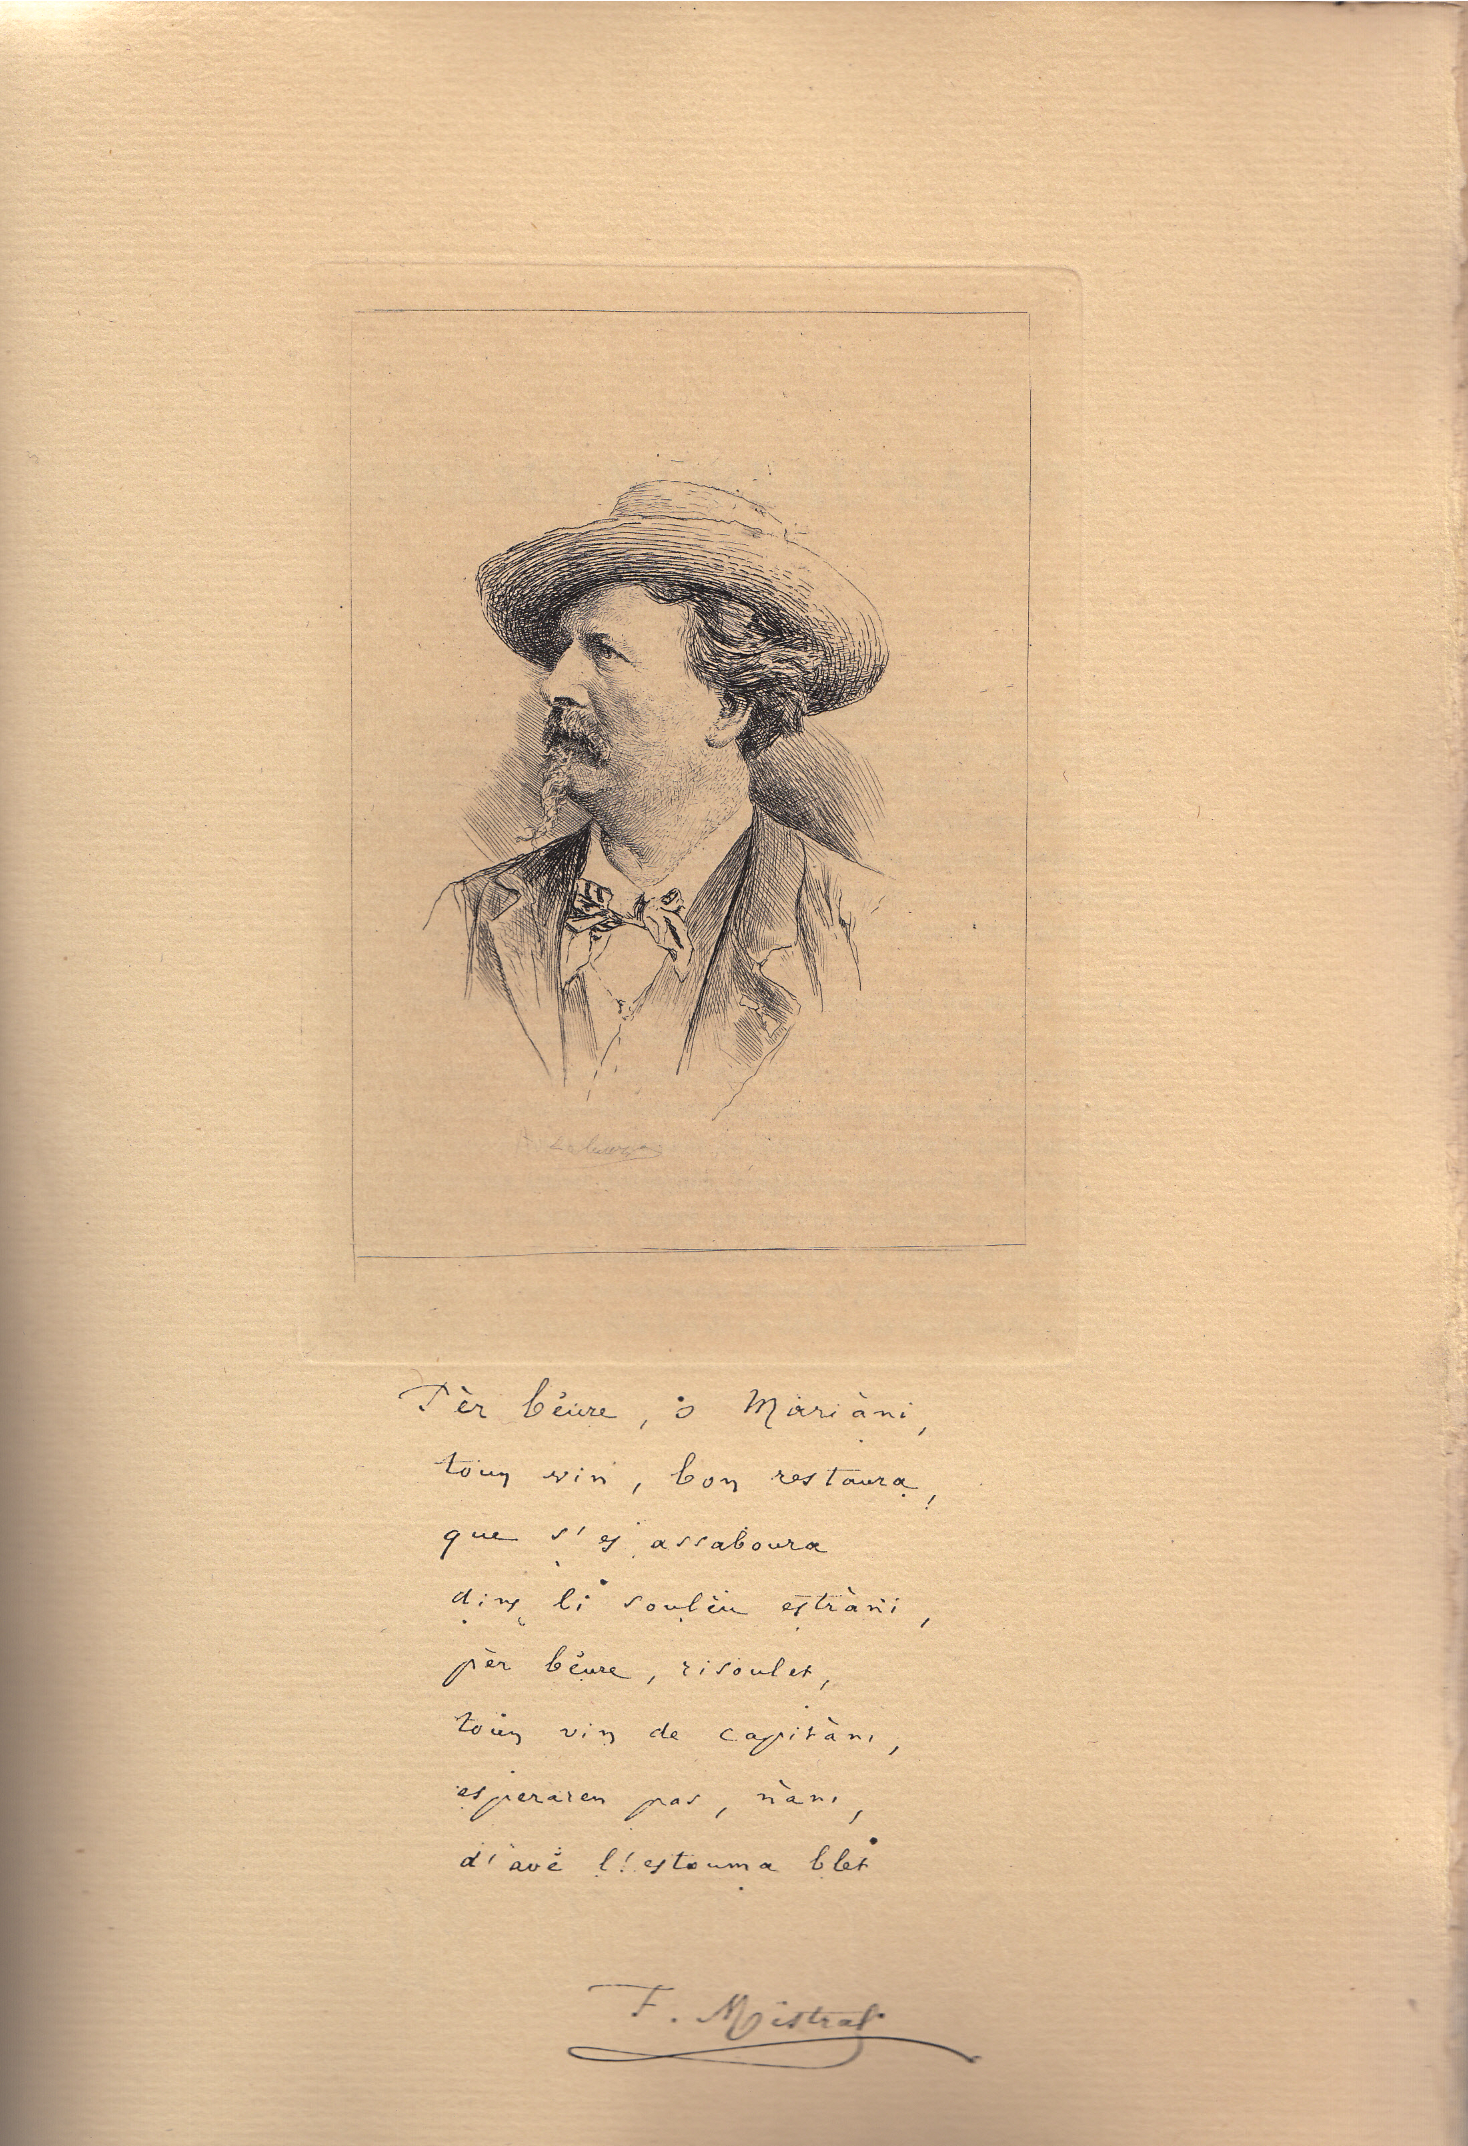 Pèr béure, o Mariàni,
toun vin, bon restaura,
que s'es assaboura
dins li soulèu estràni,
pèr béure, risoulet,
toun vin de capitàni,
esperaren pas, nàni,
d'avé l'estouma blet
F. Mistral